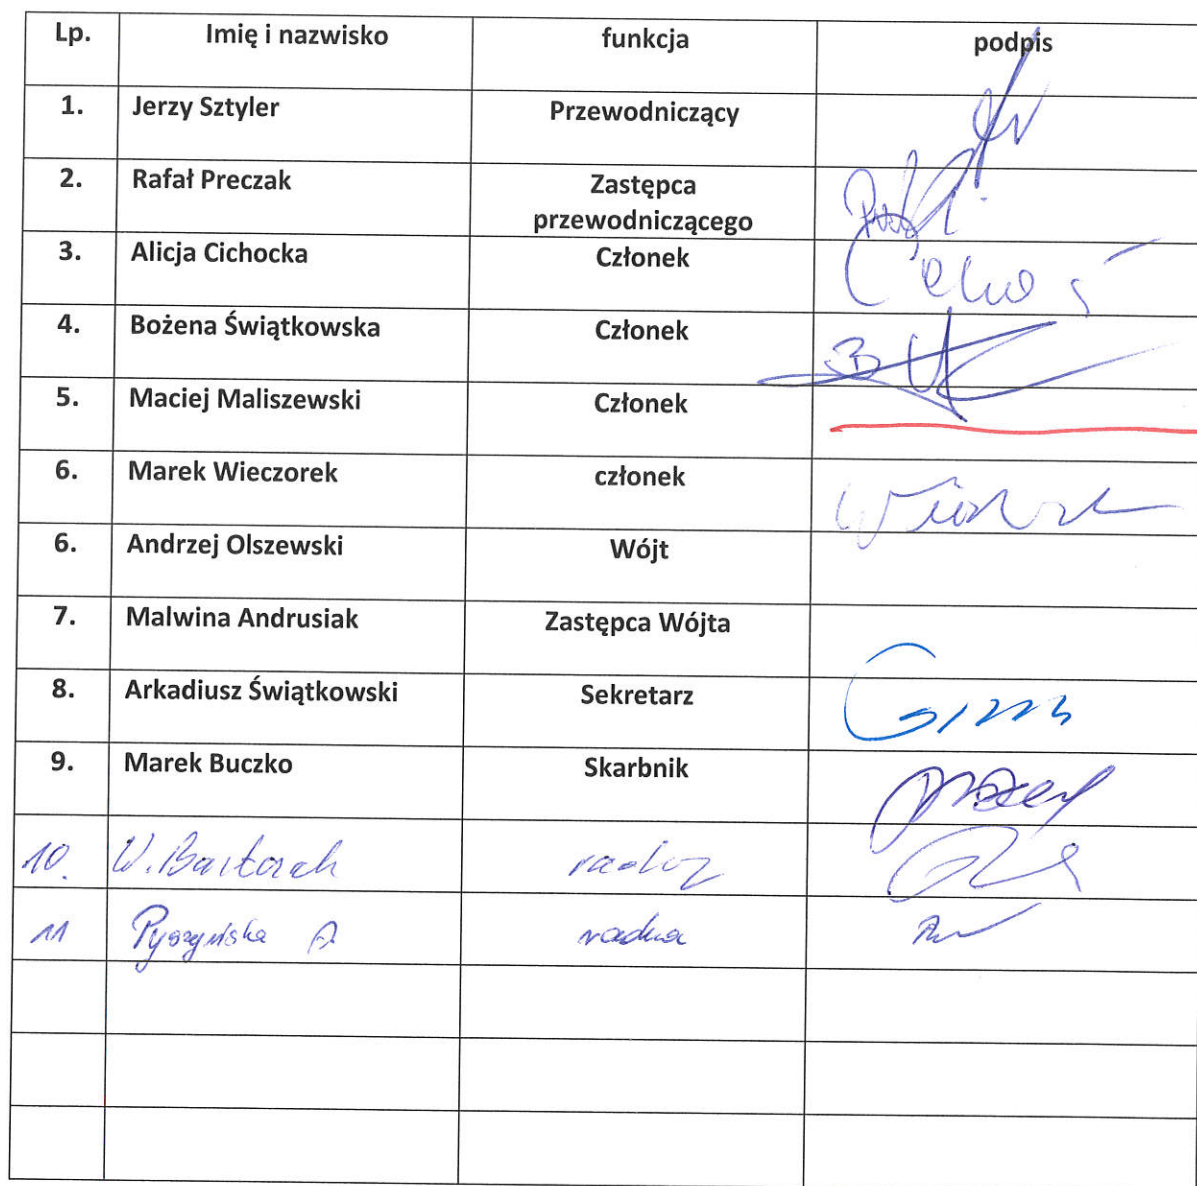 Lp. Imię i nazwisko funkcja podpis
1. Jerzy Sztyler Przewodniczący
2. Rafał Preczak Zastępca
przewodniczącego
3. Alicja Cichocka Członek
4. Bożena Świątkowska Członek
5. Maciej Maliszewski Członek
6. Marek Wieczorek członek
6. Andrzej Olszewski Wójt
7. Malwina Andrusiak Zastępca Wójta
8. Arkadiusz Świątkowski Sekretarz
9. Marek Buczko Skarbnik
10. W. radny
11 Pyszyńska A radna